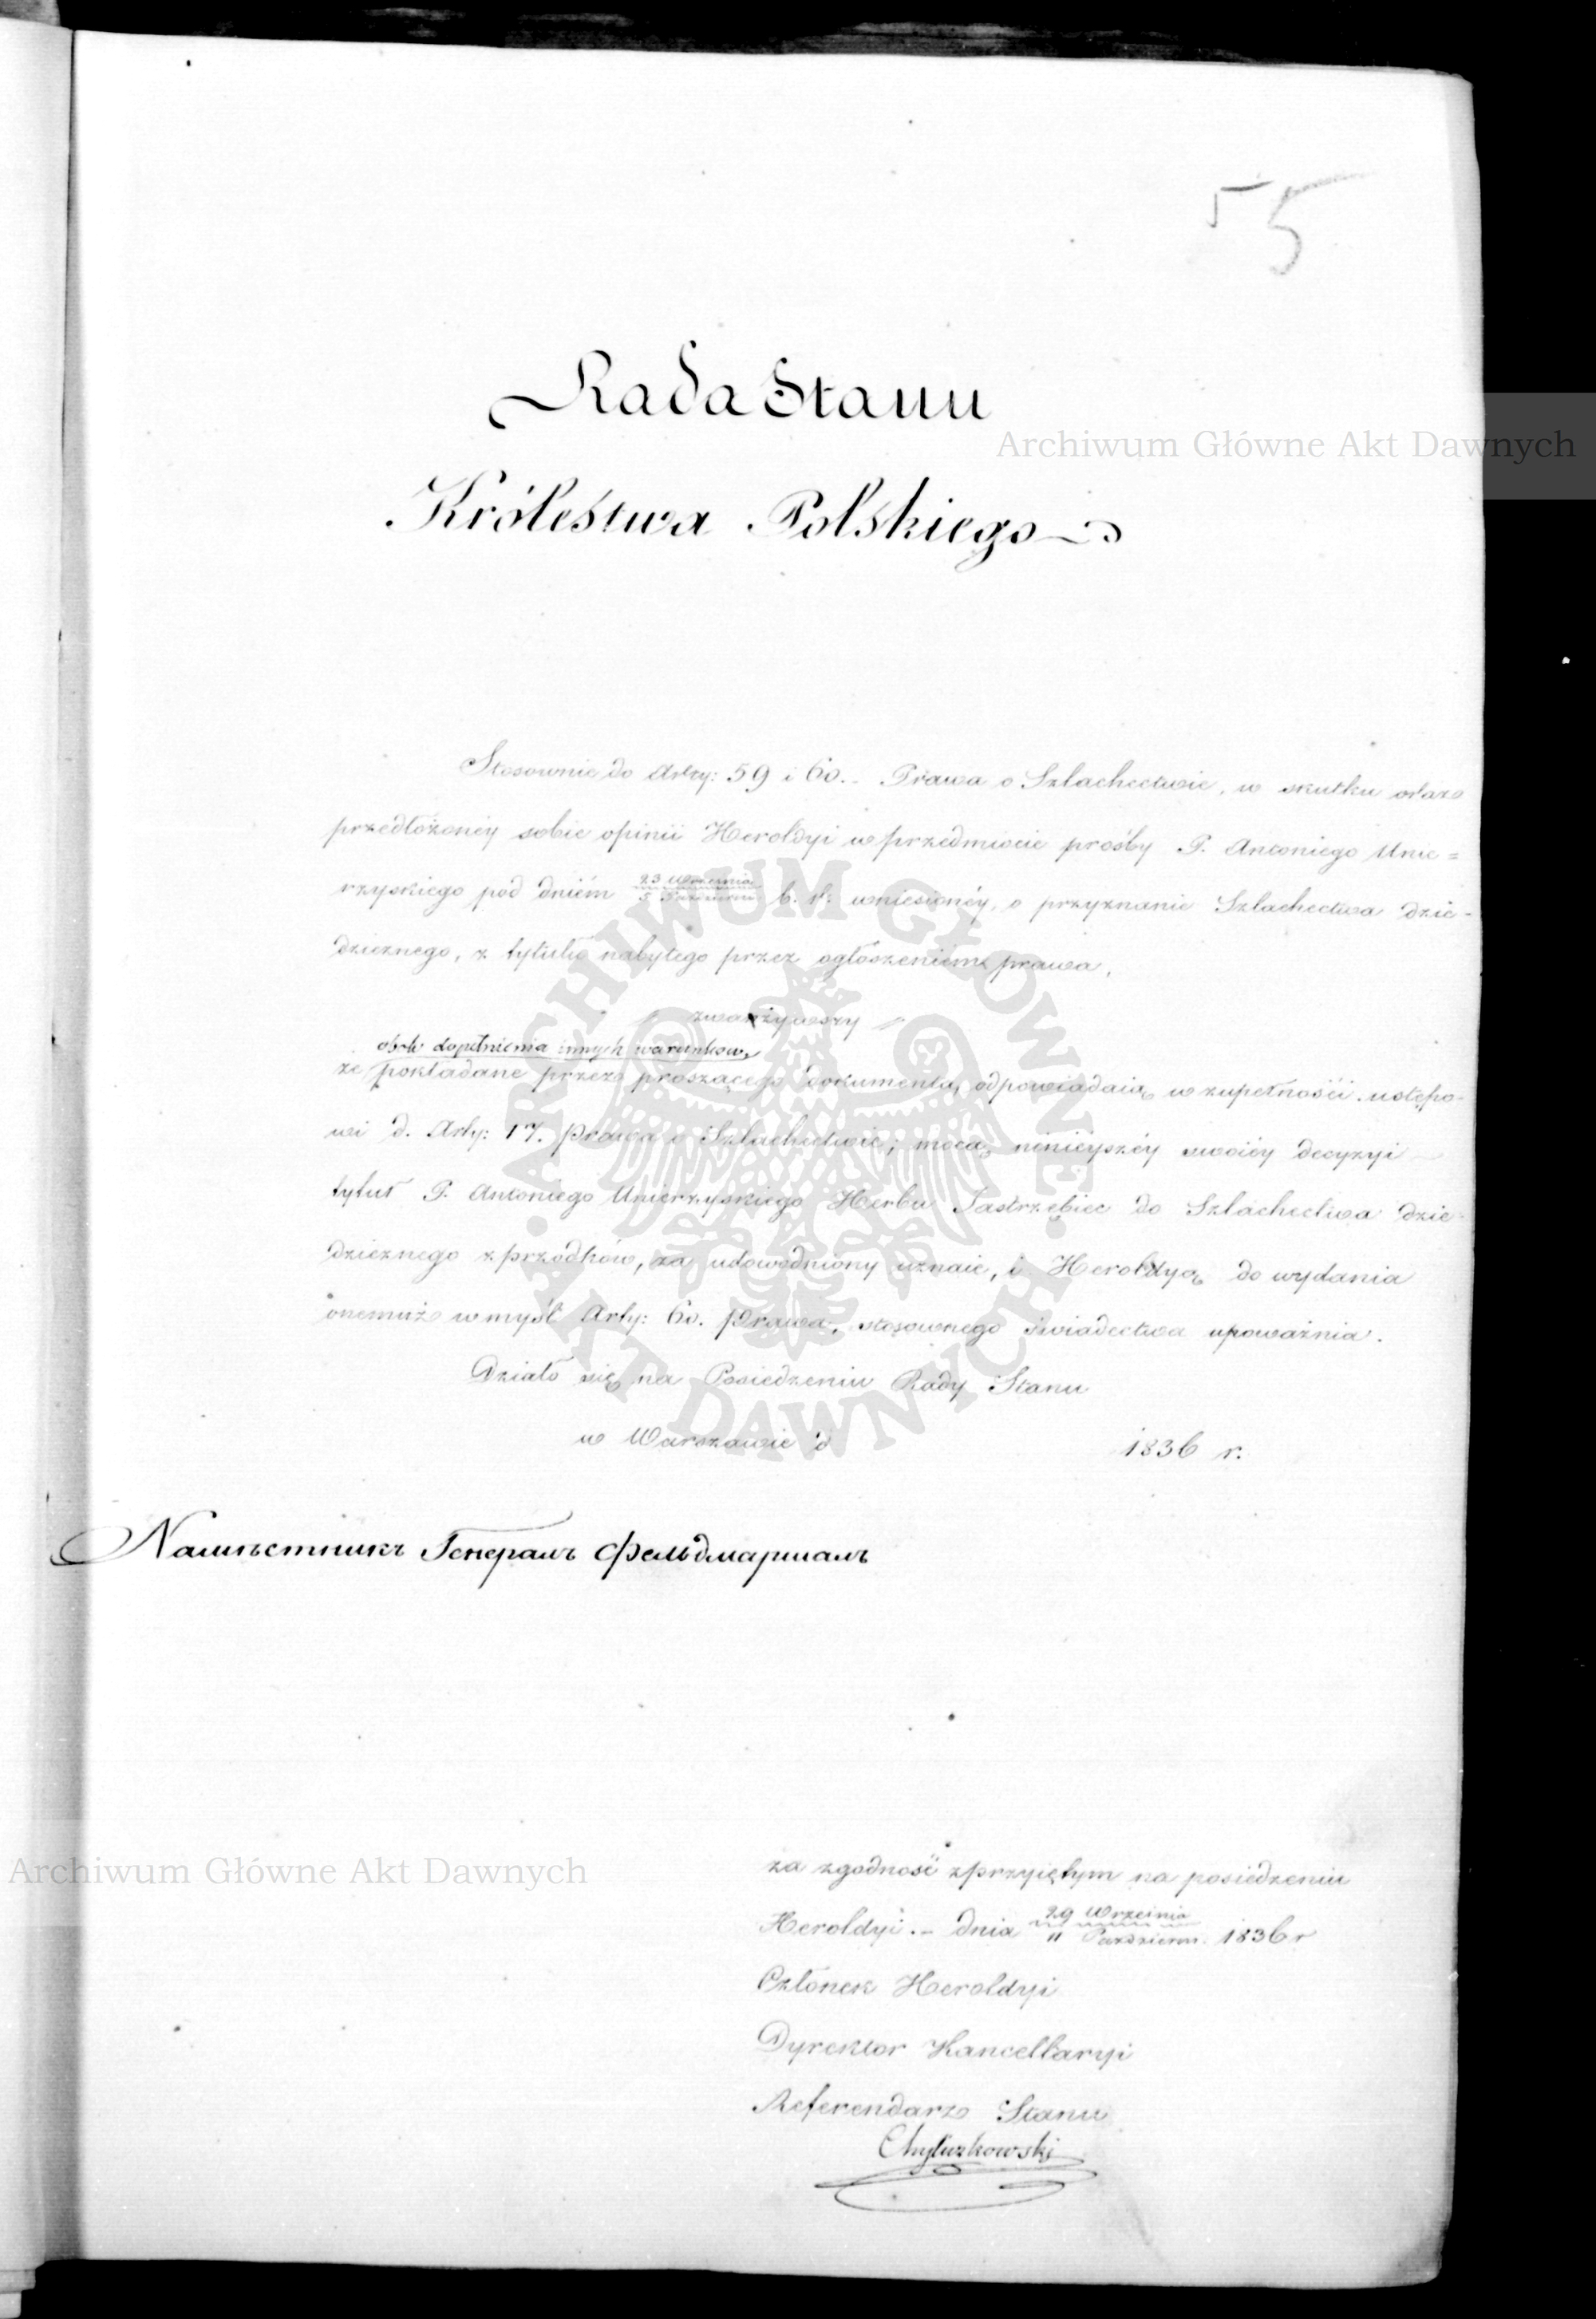 55
Rada Stanu
Królestwa Polskiego
Archiwum Główne Akt Dawnych
Stosownie do Arty: 59 i 60. - Prawa o Szlachectwie, w skutku oraz
przedłożonéy sobie opinii Heroldyi w przedmiocie prośby P. Antoniego Unie=
rzyskiego pod dniém 23 Września / 5 Październ: b. r: wniesionéy, o przyznanie Szlachectwa dzie-
dzicznego, z tytułu nabytego przez ogłoszeniem prawa,
zważywszy
obok dopełnienia innych warunkow,
że pokładane przez proszącego dokumenta, odpowiadaią w zupełności ustępo-
wi d. Arty: 17. Prawa o Szlachectwie; mocą niniéyszéy swoiéy decyzyi
tytuł P. Antoniego Unierzyskiego Herbu Jastrzębiec do Szlachectwa dzie-
dzicznego z przodków, za udowodniony uznaie, i Heroldyą do wydania
onemuż w myśl Arty: 60. Prawa, stosownego świadectwa upoważnia.
Działo się na Posiedzeniu Rady Stanu
w Warszawie d 1836 r.
Намѣстникъ Генералъ Фельдмаршалъ
za zgodność z przyiętym na posiedzeniu
Heroldyi. - dnia 29 Września / 11 Październ. 1836 r
Członek Heroldyi
Dyrektor Kancellaryi
Referendarz Stanu
Chyluzkowski
Archiwum Główne Akt Dawnych
ARCHIWUM GŁÓWNE AKT DAWNYCH